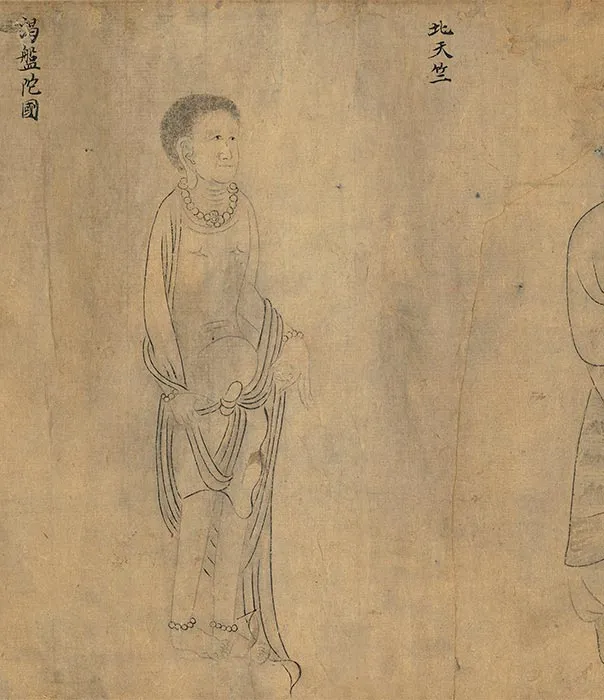 北天竺
渴盤陀國